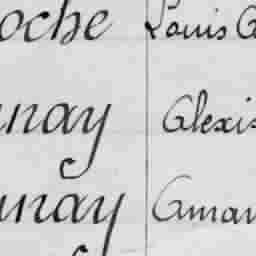 oche Louis
nay Alexis
nay Aman